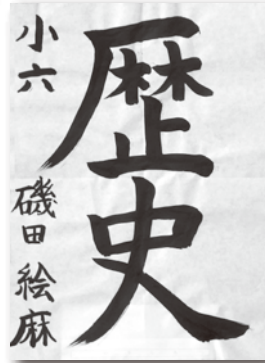 歴史
小六 磯田 絵麻